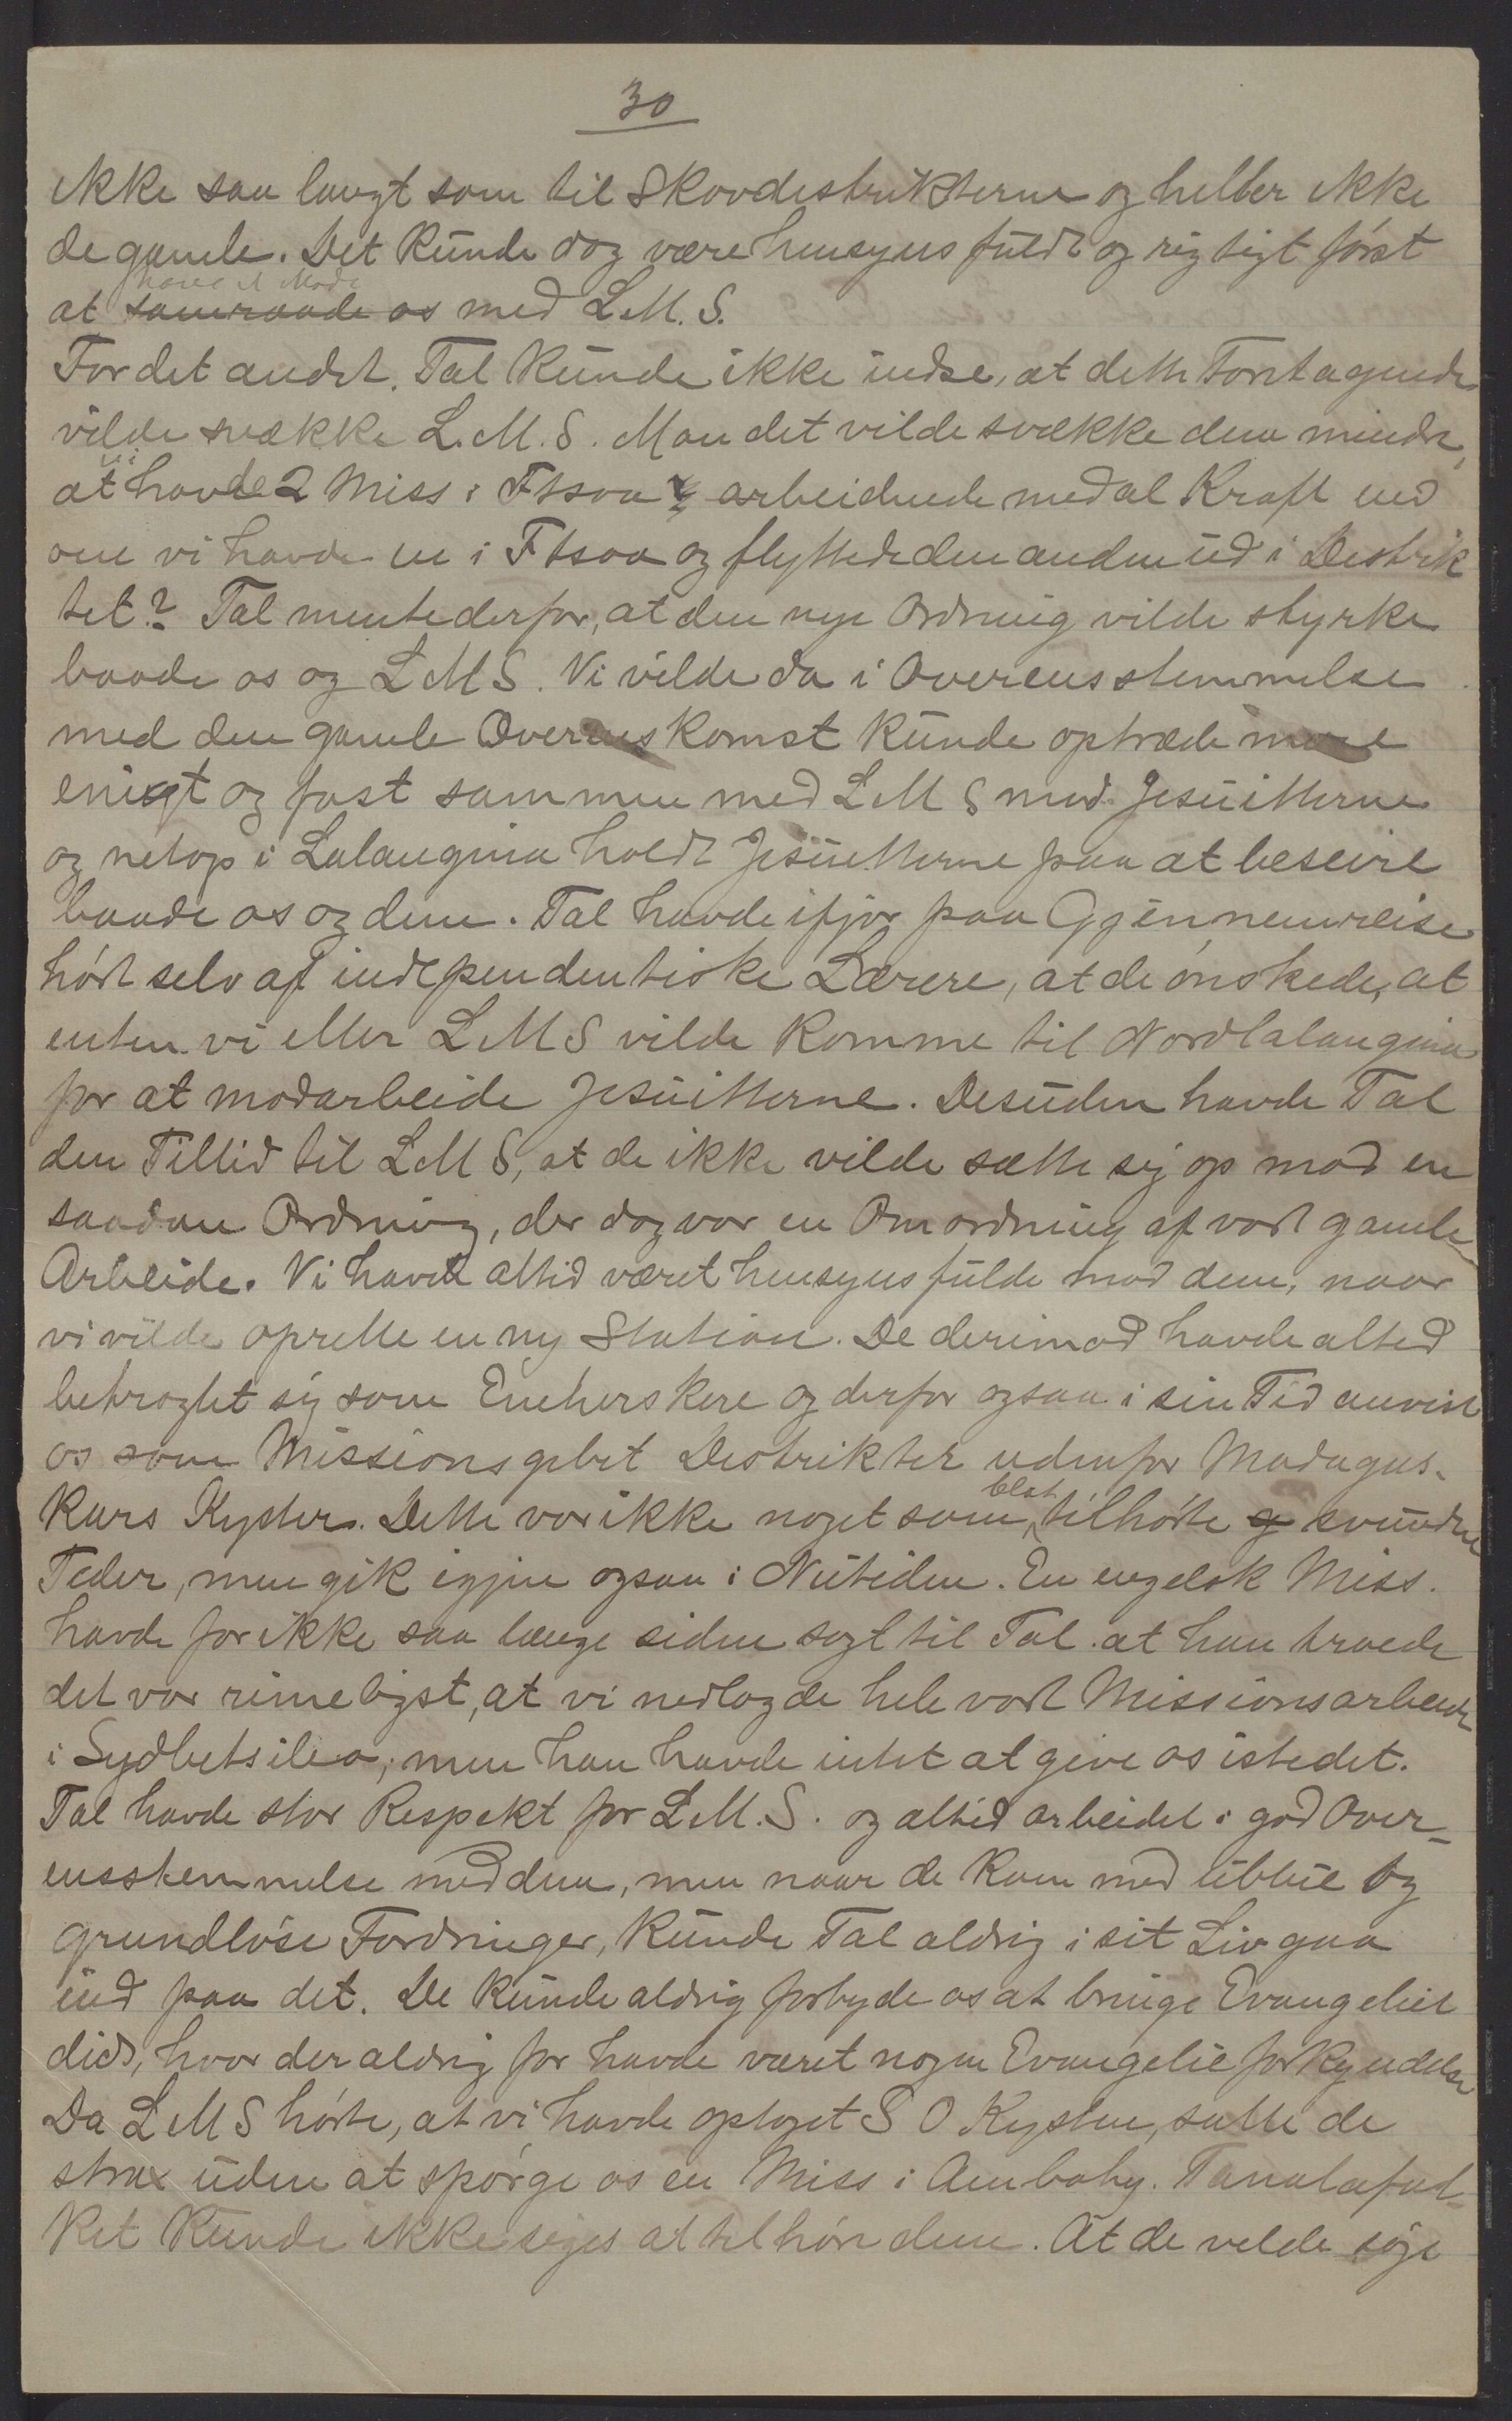 30
ikke saa langt som til Skovdistrikterne og heller ikke
de gamle. Det kunde dog være hensynsfuldt og rigtigt först
have et Møde
at samraade os med L.M.S.
For det andet. Tal kunde ikke indse, at dette Foretagende
vilde svække L.M.S. Mon det vilde svække dem mindre,
vi
at havde 2 Miss i Ftsoa arbeidende med al Kraft end
om vi havde en i Ftsoa og flyttede den anden ud i Distrik
tet? Tal mente derfor, at den nye Ordning vilde styrke
baade os og LMS. Vi vilde da i Overensstemmelse
med den gamle Overenskomst kunde optræde mere
enigt og fast sammen med LMS mod Jesuitterne
og netop i Lalangina holdt Jesuitterne paa at beseire
baade os og dem. Tal havde ifjor paa Gjennemreise
hört selv af independentiske Lærere, at de önskede, at
enten vi eller LMS vilde komme til Nordlalangina
for at modarbeide Jesuitterne. Desuden havde Tal
den Tillid til LMS, at de ikke vilde sætte sig op mod en
saadan Ordning, der dog var en Omordning af vort gamle
Arbeide. Vi havde altid været hensynsfulde mod dem, naar
vi vilde oprette en ny Station. De derimod havde altid
betragtet sig som Eneherskere og derfor ogsaa i sin Tid anvist
os som Missionsgebet Distrikter udenfor Madagas-
blot
kars Kyster. Dette var ikke noget som tilhörte svundne
Tider, men gik igjen ogsaa i Nutiden. En engelsk Miss.
havde for ikke saa længe siden sagt til Tal. at han troede
det var rimeligst, at vi nedlagde hele vort Missionsarbeide
i Sydbetsileo; men han havde intet at give os istedet.
Tal havde stor Respekt for L.M.S. og altid arbeidet i god Over-
ensstemmelse med dem, men naar de kom med ubillie og
grundlöse Fordringer, kunde Tal aldrig i sit Liv gaa
ind paa det. De kunde aldrig forbyde os at bringe Evangeliet
did, hvor der aldrig för havde været nogen Evangelieforkyndelse
Da LMS hörte, at vi havde optaget S O Kysten, satte de
strax uden at spörge os en Miss i Ambohy. Tanalafol-
ket kunde ikke siges at tilhöre dem. At de vilde söge